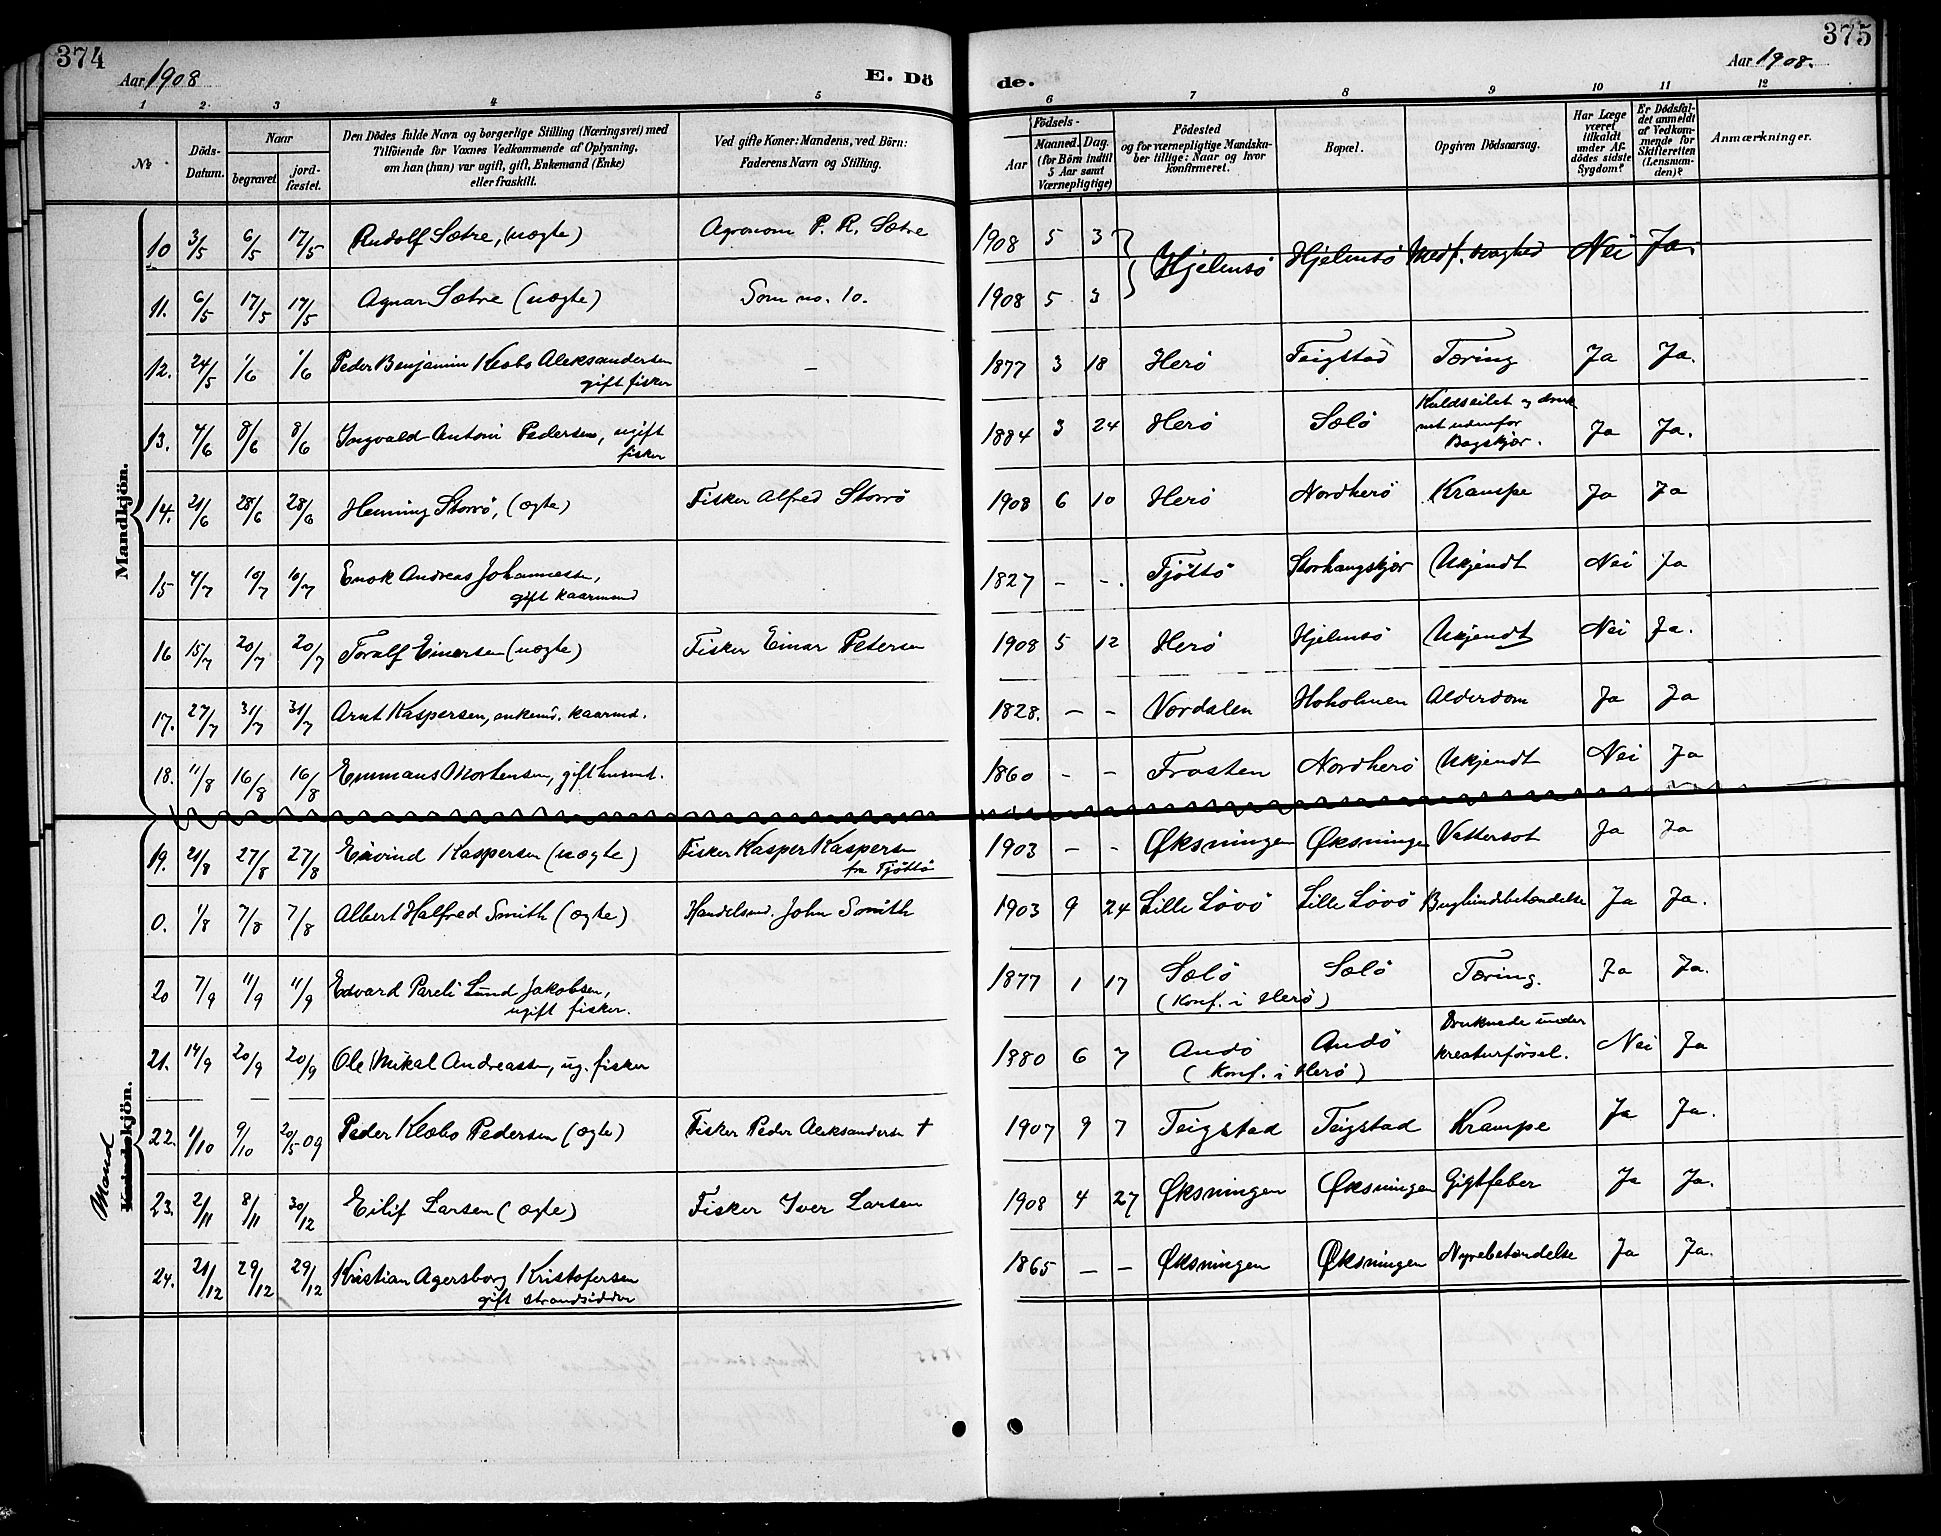 374
Aar 1908
E. Dö
de.
Aar 1908.
375
1 2 3 4 5 6 7 8 9 10 11 12
№
Döds-Datum.
Naar
begravet
jordfæstet.
Den Dödes fulde Navn og borgerlige Stilling (Næringsvei) med
Tilföiende for Voxnes Vedkommende af Oplysning,
om han (hun) var ugift, gift, Enkemand (Enke)
eller fraskilt.
Ved gifte Koner: Mandens, ved Börn:
Faderens Navn og Stilling.
Födsels-
Aar
Maaned. Dag.
(for Börn indtil
5 Aar samt
Værnepligtige)
Födested
og for værnepligtige Mandskaber tillige: Naar og hvor
konfirmeret.
Bopæl.
Opgiven Dödsaarsag.
Har Læge
været
tilkaldt
under Afdödes sidste
Sygdom?
Er Dödsfaldet anmeldt
af Vedkommende for
Skifteretten
(Lensmanden)?
Anmærkninger.
Mandkjön.
10 3/5 6/5 17/5 Rudolf Sætre, (uægte) Agronom P. R. Sætre 1908 5 3 Hjelmsö Hjelmsö Medf. svaghed Nei Ja.
11. 6/5 17/5 17/5 Agnar Sætre (uægte) Som no. 10. 1908 5 3
12. 24/5 1/6 1/6 Peder Benjamin Klæbo Aleksandersen
gift fisker – 1877 3 18 Herö Teigstad Tæring Ja Ja.
13. 4/6 8/6 8/6 Ingvald Antoni Pedersen, ugift
fisker 1884 3 24 Herö Sælö Kuldseilet og druknet udenfor
Bagskjær. Ja Ja.
14. 21/6 28/6 28/6 Henning Storrö, (ægte) Fisker Alfred Storrö 1908 6 10 Herö Nordherö Krampe Ja Ja
15 4/7 10/7 10/7 Enok Andreas Johannessen,
gift kaarmand 1827 – – Tjöttö Storhaugskjær Ukjendt Nei Ja
16 15/7 20/7 20/7 Toralf Einersen (uægte) Fisker Einar Petersen 1908 5 12 Herö Hjelmsö Ukjendt Nei Ja.
17. 27/7 31/7 31/7 Arnt Kaspersen, enkemd. kaarmd. 1828. – – Nordalen Hoholmen Alderdom Ja Ja
18. 11/8 16/8 16/8 Emmaus Mortensen, gift husmd. 1860 – – Frosten Nordherö Ukjendt Nei Ja
Mand
Kvindekjön.
19. 21/8 27/8 27/8 Eivind Kaspersen (uægte) Fisker Kasper Kaspersen
fra Tjöttö 1903 – – Øksningen Øksningen Vattersot Ja Ja
0. 1/8 7/8 7/8 Albert Halfred Smith (ægte) Handelsmd. John Smith 1903 9 24 Lille Lövö Lille Lövö Bughindbetændelse Ja Ja.
20 7/9 11/9 11/9 Edvard Pareli Lund Jakobsen,
ugift fisker. 1877 1 17 Sælö
(Konf. i Herö) Sælö Tæring. Ja Ja.
21. 14/9 20/9 20/9 Ole Mikal Andreassen, ug. fisker 1880 6 7 Andö
(Konf. i Herö) Andö Druknede under
kreaturförsel. Nei Ja
22. 1/10 9/10 20/5 09 Peder Klæbo Pedersen (ægte) Fisker Peder Aleksandersen † 1907 9 7 Teigstad Teigstad Krampe Ja Ja.
23. 2/11 8/11 30/12 Eilif Larsen (ægte) Fisker Iver Larsen 1908 4 27 Øksningen Øksningen Gigtfeber Ja Ja.
24. 21/12 29/12 29/12 Kristian Agersborg Kristofersen
gift strandsidder 1865 – – Øksningen Øksningen Nyrebetændelse Ja Ja.